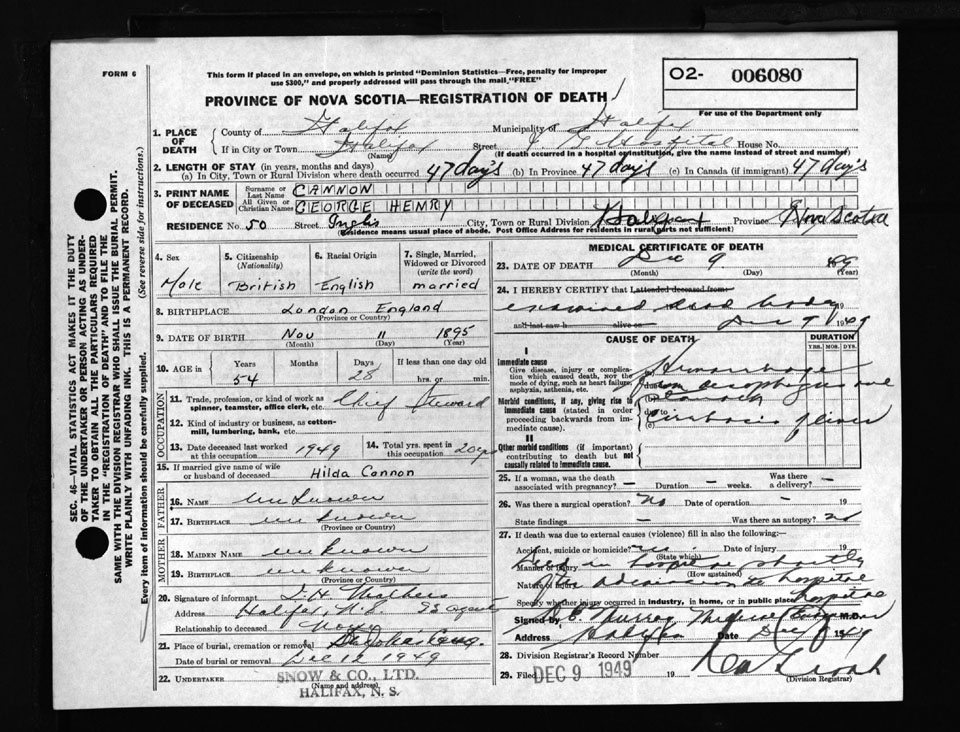 FORM 6
This form if placed in an envelope, on which is printed "Dominion Statistics—Free, penalty for improper
use $300," and properly addressed will pass through the mail "FREE"
O2- 006080
PROVINCE OF NOVA SCOTIA—REGISTRATION OF DEATH
For use of the Department only
1. PLACE OF DEATH
County of Halifax Municipality of Halifax
If in City or Town Halifax Street Hospital House No.
(Name) (If death occurred in a hospital or institution, give the name instead of street and number)
2. LENGTH OF STAY (in years, months and days)
(a) In City, Town or Rural Division where death occurred 47 day's (b) In Province 47 day's (c) In Canada (if immigrant) 47 day's
3. PRINT NAME OF DECEASED
Surname or Last Name CANNON
All Given or Christian Names GEORGE HENRY
RESIDENCE No. 50 Street Inglis City, Town or Rural Division Halifax Province Nova Scotia
(Residence means usual place of abode. Post Office Address for residents in rural parts not sufficient)
4. Sex
Male
5. Citizenship (Nationality)
British
6. Racial Origin
English
7. Single, Married, Widowed or Divorced (write the word)
married
8. BIRTHPLACE London England
(Province or Country)
9. DATE OF BIRTH Nov 11 1895
(Month) (Day) (Year)
10. AGE in
Years Months Days If less than one day old
54 28 hrs. or min.
OCCUPATION
11. Trade, profession, or kind of work as spinner, teamster, office clerk, etc. Chief Steward
12. Kind of industry or business, as cotton-mill, lumbering, bank, etc.
13. Date deceased last worked at this occupation 1949
14. Total yrs. spent in this occupation 20
15. If married give name of wife or husband of deceased Hilda Cannon
FATHER
16. NAME unknown
17. BIRTHPLACE unknown
(Province or Country)
MOTHER
18. MAIDEN NAME unknown
19. BIRTHPLACE unknown
(Province or Country)
20. Signature of informant I.H. Mathers
Address Halifax, N.S. SS agents
Relationship to deceased None
21. Place of burial, cremation or removal
Date of burial or removal Dec 12 1949
22. UNDERTAKER SNOW & CO., LTD.
(Name and address)
HALIFAX, N. S.
MEDICAL CERTIFICATE OF DEATH
23. DATE OF DEATH Dec 9 49
(Month) (Day) (Year)
24. I HEREBY CERTIFY that I attended deceased from
examined dead body 19
and last saw h alive on Dec 9 1949
CAUSE OF DEATH
DURATION
YRS. MOS. DYS.
I
Immediate cause
Give disease, injury or complication which caused death, not the mode of dying, such as heart failure, asphyxia, asthenia, etc.
Hemorrhage
from oesophagus and
stomach
Morbid conditions, if any, giving rise to immediate cause (stated in order proceeding backwards from immediate cause).
Cirrhosis of liver
II
Other morbid conditions (if important) contributing to death but not causally related to immediate cause.
25. If a woman, was the death associated with pregnancy? — — weeks. Was there a delivery? —
26. Was there a surgical operation? no Date of operation — 19
State findings — Was there an autopsy? no
27. If death was due to external causes (violence) fill in also the following:—
Accident, suicide or homicide? no Date of injury 19
(State which)
Manner of injury Died in hospital shortly
(How sustained)
Nature of injury after admission to hospital
Specify whether injury occurred in industry, in home, or in public place hospital
Signed by Murray Medical Examiner M.D.
Address Halifax Date Dec 9 1949
28. Division Registrar's Record Number
29. Filed DEC 9 1949 19
(Division Registrar)
SEC. 46—VITAL STATISTICS ACT MAKES IT THE DUTY
OF THE UNDERTAKER OR PERSON ACTING AS UNDER-
TAKER TO OBTAIN ALL THE PARTICULARS REQUIRED
IN THE "REGISTRATION OF DEATH" AND TO FILE THE
SAME WITH THE DIVISION REGISTRAR WHO SHALL ISSUE THE BURIAL PERMIT.
WRITE PLAINLY WITH UNFADING INK. THIS IS A PERMANENT RECORD.
Every item of information should be carefully supplied. (See reverse side for instructions.)